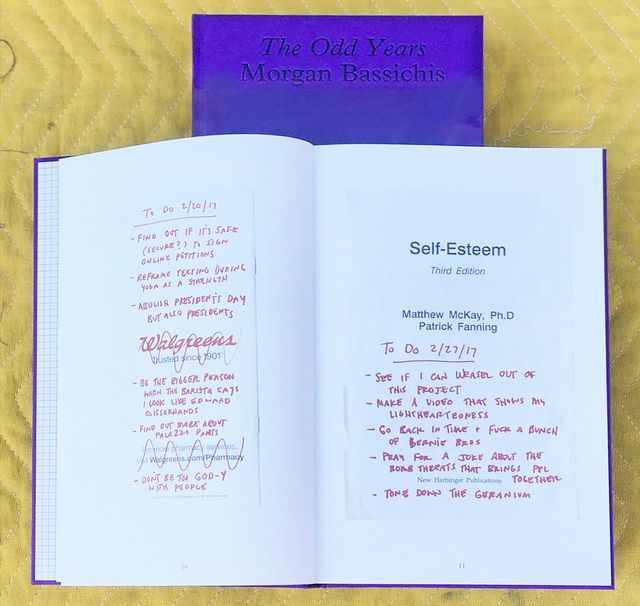 The Odd Years
Morgan Bassichis
To Do 2/20/17
- FIND OUT IF IT'S SAFE
(SECURE?) TO SIGN
ONLINE PETITIONS
- REFRAME TEXTING DURING
YOGA AS A STRENGTH
- ABOLISH PRESIDENT'S DAY
BUT ALSO PRESIDENTS
Walgreens
Trusted since 1901
- BE THE BIGGER PERSON
WHEN THE BARISTA SAYS
I LOOK LIKE EDWARD
SCISSORHANDS
- FIND OUT MORE ABOUT
PALAZZO PANTS
For more pharmacy services,
visit Walgreens.com/Pharmacy
- DON'T BE TOO GOD-Y
WITH PEOPLE
10
Self-Esteem
Third Edition
Matthew McKay, Ph.D
Patrick Fanning
To Do 2/27/17
- SEE IF I CAN WEASEL OUT OF
THIS PROJECT
- MAKE A VIDEO THAT SHOWS MY
LIGHSHEARTEDNESS
- GO BACK IN TIME + FUCK A BUNCH
OF BERNIE BROS
- PRAY FOR A JOKE ABOUT THE
BOMB THREATS THAT BRINGS PPL
TOGETHER
New Harbinger Publications
- TONE DOWN THE GERANIUM
11